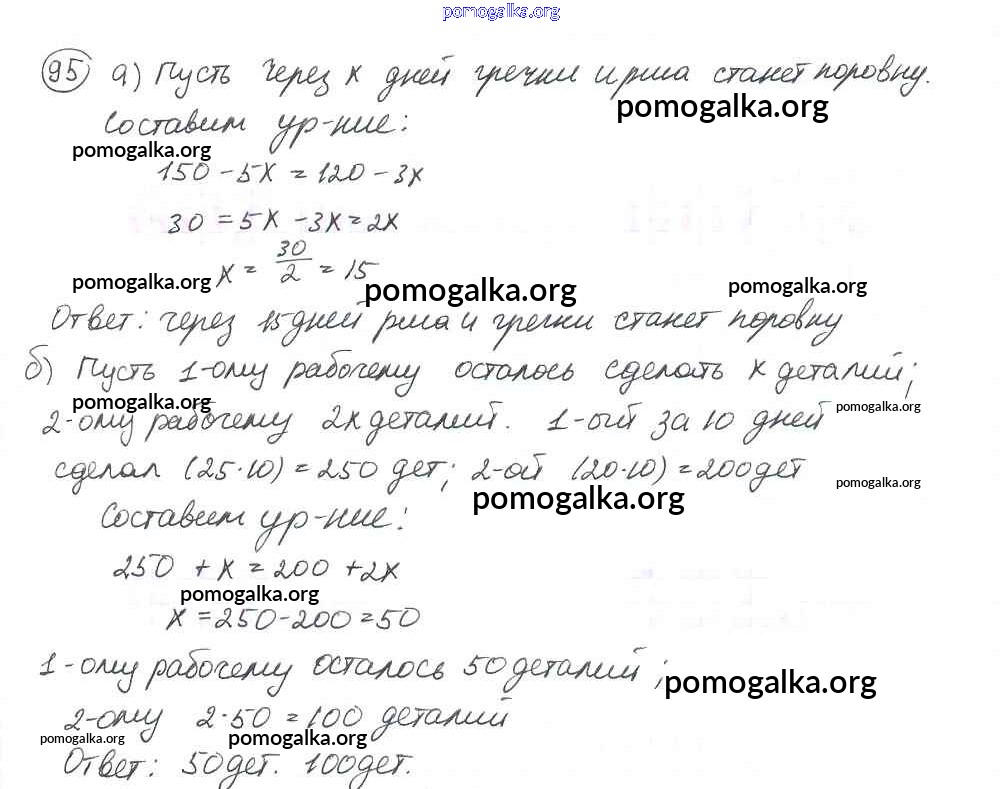 pomogalka.org
95 а) Пусть через х дней гречки и риса станет поровну.
pomogalka.org
Составим ур-ние:
pomogalka.org
150 - 5х = 120 - 3х
30 = 5х - 3х = 2х
х = 30/2 = 15
pomogalka.org pomogalka.org pomogalka.org
Ответ: через 15 дней риса и гречки станет поровну
б) Пусть 1-ому рабочему осталось сделать х деталий;
pomogalka.org pomogalka.org
2-ому рабочему 2х деталий. 1-ый за 10 дней
сделал (25·10) = 250 дет; 2-ой (20·10) = 200 дет
pomogalka.org pomogalka.org
Составим ур-ние:
250 + х = 200 + 2х
pomogalka.org
х = 250 - 200 = 50
1-ому рабочему осталось 50 деталий;
pomogalka.org
2-ому 2·50 = 100 деталий
pomogalka.org pomogalka.org
Ответ: 50 дет. 100 дет.